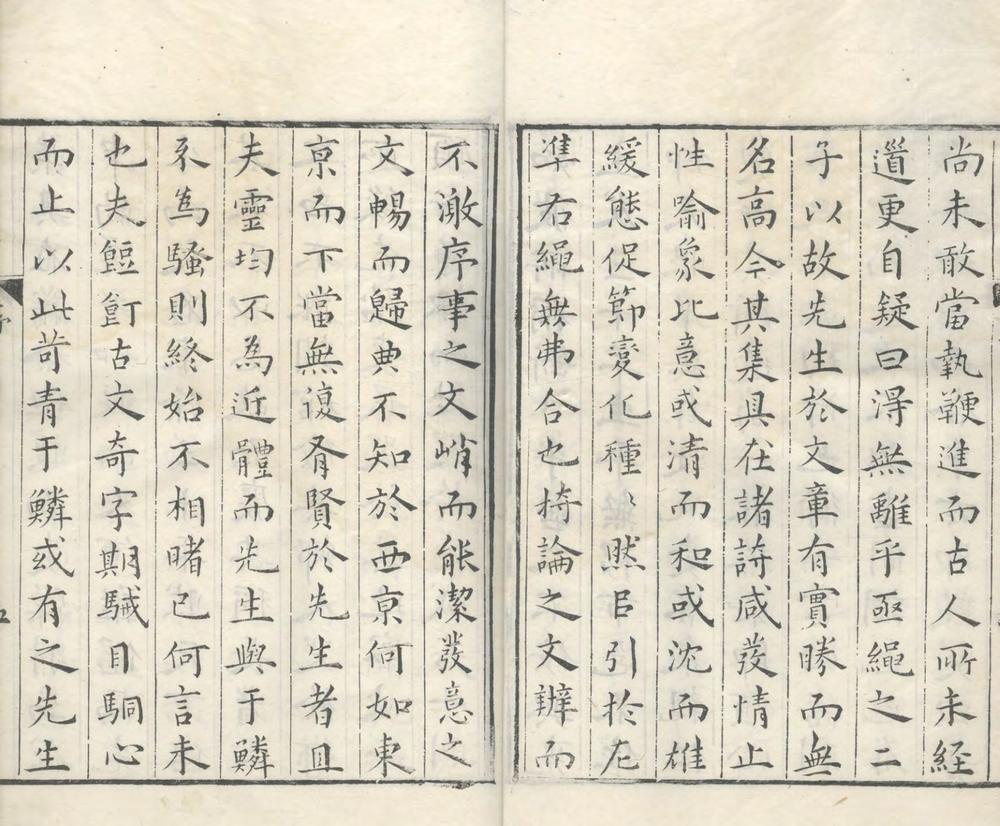 尚未敢當執鞭進而古人所未經
道更自疑曰淂無離乎亟繩之二
子以故先生於文章有實勝而無
名高今其集具在諸詩咸發情止
性喻象比意或清而和或沈而雄
緩態促節變化種〻然㠯引扵左
凖右繩無弗合也持論之文辯而
不激序事之文峭而能潔發意之
文暢而歸典不知於西京何如東
京而下當無復有賢於先生者且
夫靈均不為近體而先生與于鱗
不為騷則終始不相睹已何言未
也夫饾飣古文奇字期駴目駧心
而止以此苛青于鱗或有之先生
序
五